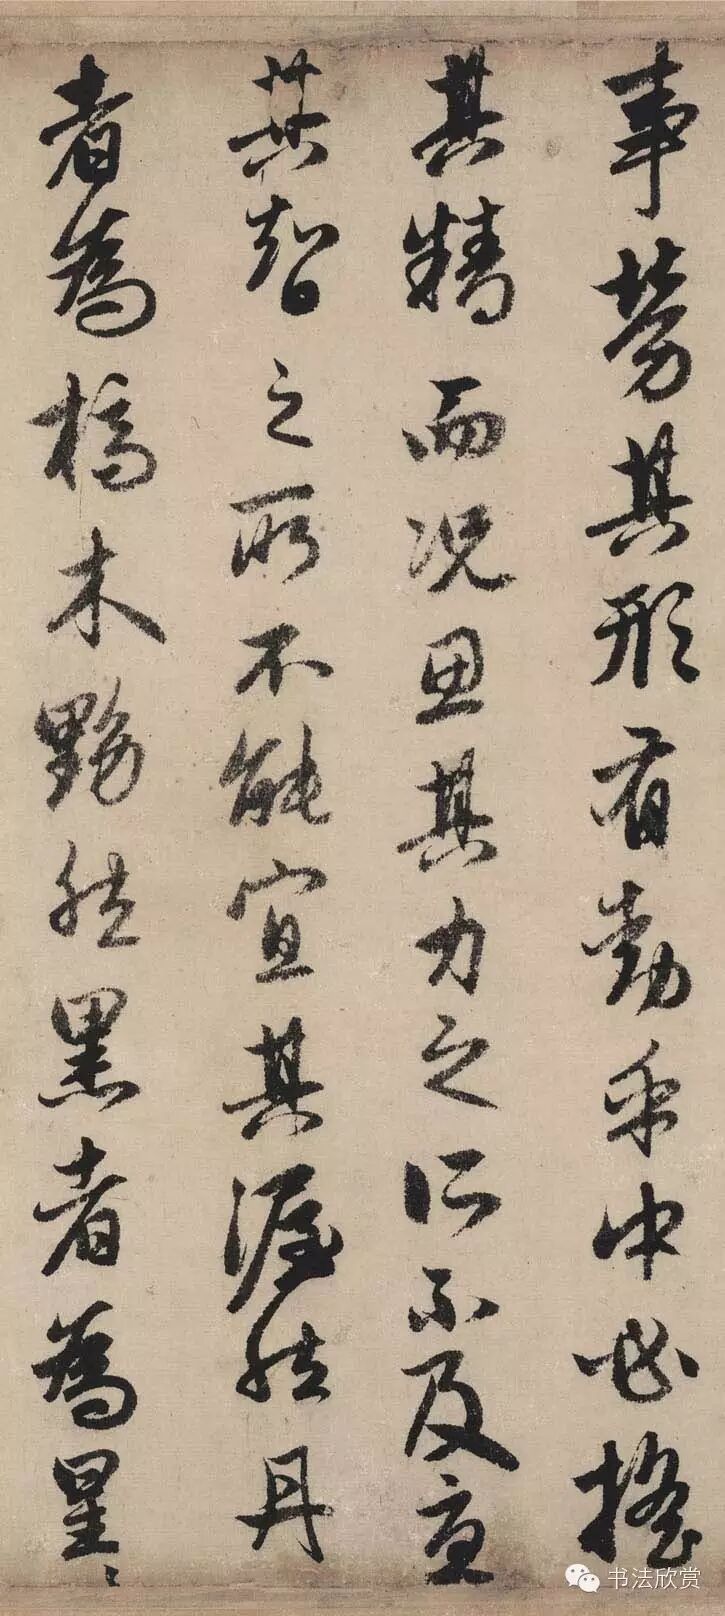 事勞其形有動乎中必搖
其精而况思其力之所不及憂
其智之所不能宜其渥然丹
者為槁木黟然黑者為星〻
书法欣赏